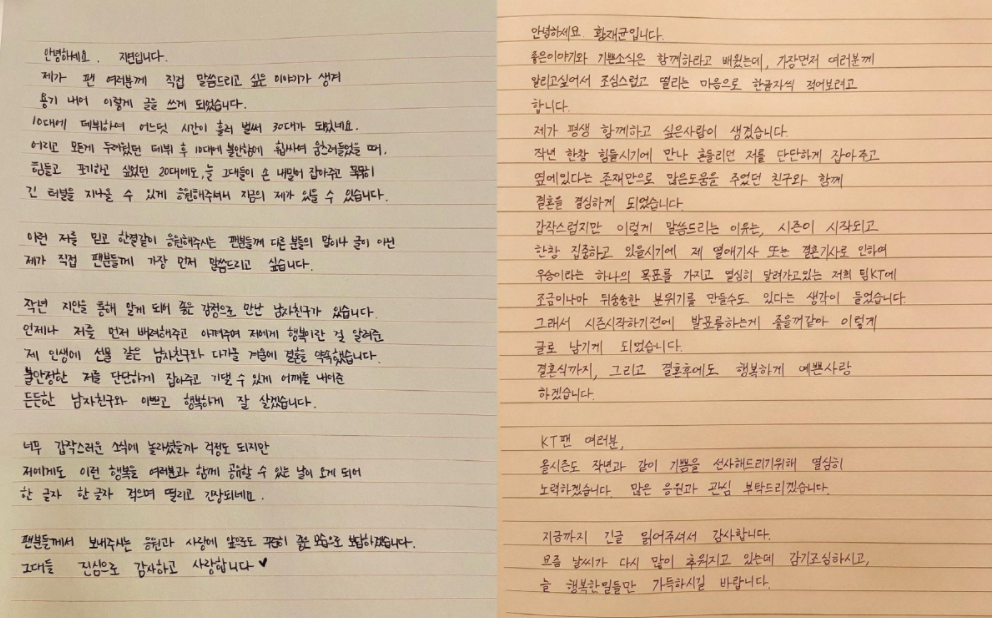 안녕하세요. 지연입니다.
제가 팬 여러분께 직접 말씀드리고 싶은 이야기가 생겨
용기 내어 이렇게 글을 쓰게 되었습니다.
10대에 데뷔하여 어느덧 시간이 흘러 벌써 30대가 되었네요.
어리고 모든게 두려웠던 데뷔 후 10대에 불안함에 휩싸여 움츠러들었을 때,
힘들고 포기하고 싶었던 20대에도, 늘 그대들이 손 내밀어 잡아주고 묵묵히
긴 터널을 지나올 수 있게 응원해주셔서 지금의 제가 있을 수 있습니다.
이런 저를 믿고 한결같이 응원해주시는 팬분들께 다른 분들의 말이나 글이 아닌
제가 직접 팬분들께 가장 먼저 말씀드리고 싶습니다.
작년 지인을 통해 알게 되어 좋은 감정으로 만난 남자친구가 있습니다.
언제나 저를 먼저 배려해주고 아껴주며 저에게 행복이란 걸 알려준
제 인생에 선물 같은 남자친구와 다가올 겨울에 결혼을 약속했습니다.
불안정한 저를 단단하게 잡아주고 기댈 수 있게 어깨를 내어준
든든한 남자친구와 이쁘고 행복하게 잘 살겠습니다.
너무 갑작스러운 소식에 놀라셨을까 걱정도 되지만
저에게도 이런 행복을 여러분과 함께 공유할 수 있는 날이 오게 되어
한 글자 한 글자 적으며 떨리고 긴장되네요.
팬분들께서 보내주시는 응원과 사랑에 앞으로도 꾸준히 좋은 모습으로 보답하겠습니다.
그대들 진심으로 감사하고 사랑합니다♥
안녕하세요 황재균입니다.
좋은이야기와 기쁜소식은 함께하라고 배웠는데, 가장먼저 여러분께
알리고싶어서 조심스럽고 떨리는 마음으로 한글자씩 적어보려고
합니다.
제가 평생 함께하고 싶은사람이 생겼습니다.
작년 한창 힘들시기에 만나 흔들리던 저를 단단하게 잡아주고
옆에있다는 존재만으로 많은도움을 주었던 친구와 함께
결혼을 결심하게 되었습니다
갑작스럽지만 이렇게 말씀드리는 이유는, 시즌이 시작되고
한창 집중하고 있을시기에 제 열애기사 또는 결혼기사로 인하여
우승이라는 하나의 목표를 가지고 열심히 달려가고있는 저희 팀KT에
조금이나마 뒤숭숭한 분위기를 만들수도 있다는 생각이 들었습니다
그래서 시즌시작하기전에 발표를하는게 좋을꺼같아 이렇게
글로 남기게 되었습니다.
결혼식까지, 그리고 결혼후에도 행복하게 예쁜사랑
하겠습니다.
KT팬 여러분,
올시즌도 작년과 같이 기쁨을 선사해드리기위해 열심히
노력하겠습니다. 많은 응원과 관심 부탁드리겠습니다.
지금까지 긴글 읽어주셔서 감사합니다.
요즘 날씨가 다시 많이 추워지고 있는데 감기조심하시고,
늘 행복한일들만 가득하시길 바랍니다.